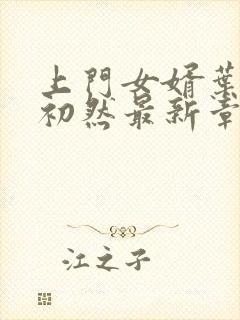 上門女婿葉
初然最新章
江之子